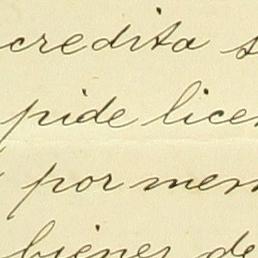 credita s
pide licen
por men
bienes de